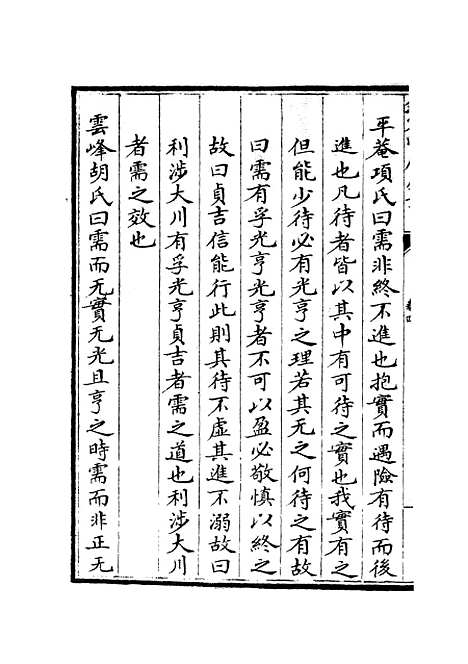 平菴項氏曰需非終不進也抱實而遇險有待而後
進也凡待者皆以其中有可待之實也我實有之
但能少待必有光亨之理若其无之何待之有故
曰需有孚光亨光亨者不可以盈必敬慎以終之
故曰貞吉信能行此則其待不虛其進不溺故曰
利涉大川有孚光亨貞吉者需之道也利涉大川
者需之效也
雲峰胡氏曰需而无實无光且亨之時需而非正无